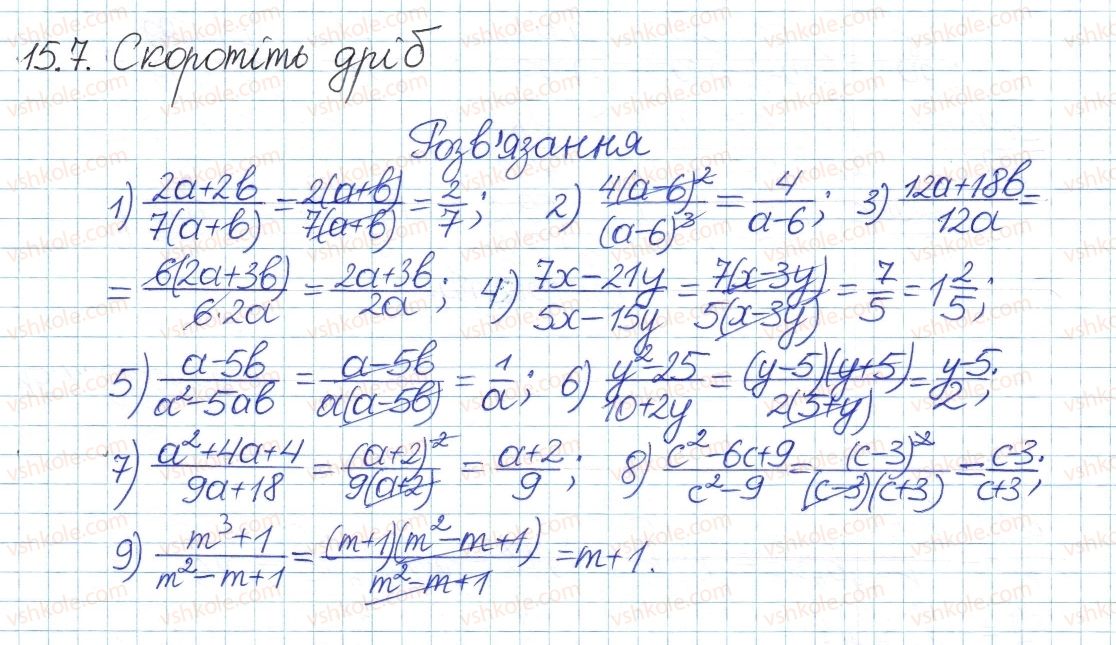 15.7. Скоротіть дріб
Розв'язання
1) (2a+2b)/(7(a+b)) = (2(a+b))/(7(a+b)) = 2/7; 2) (4(a-6)²)/((a-6)³) = 4/(a-6); 3) (12a+18b)/(12a) =
= (6(2a+3b))/(6·2a) = (2a+3b)/(2a); 4) (7x-21y)/(5x-15y) = (7(x-3y))/(5(x-3y)) = 7/5 = 1 2/5;
5) (a-5b)/(a²-5ab) = (a-5b)/(a(a-5b)) = 1/a; 6) (y²-25)/(10+2y) = ((y-5)(y+5))/(2(5+y)) = (y-5)/2;
7) (a²+4a+4)/(9a+18) = ((a+2)²)/(9(a+2)) = (a+2)/9; 8) (c²-6c+9)/(c²-9) = ((c-3)²)/((c-3)(c+3)) = (c-3)/(c+3);
9) (m³+1)/(m²-m+1) = ((m+1)(m²-m+1))/(m²-m+1) = m+1.